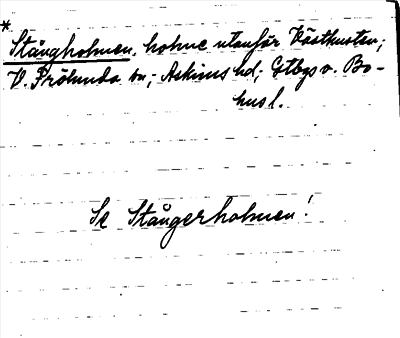 * Stångholmen, holme utanför Västkusten;
V. Frölunda sn; Askims hd; Gtbgs o. Bo-
husl.
Se Stångerholmen!